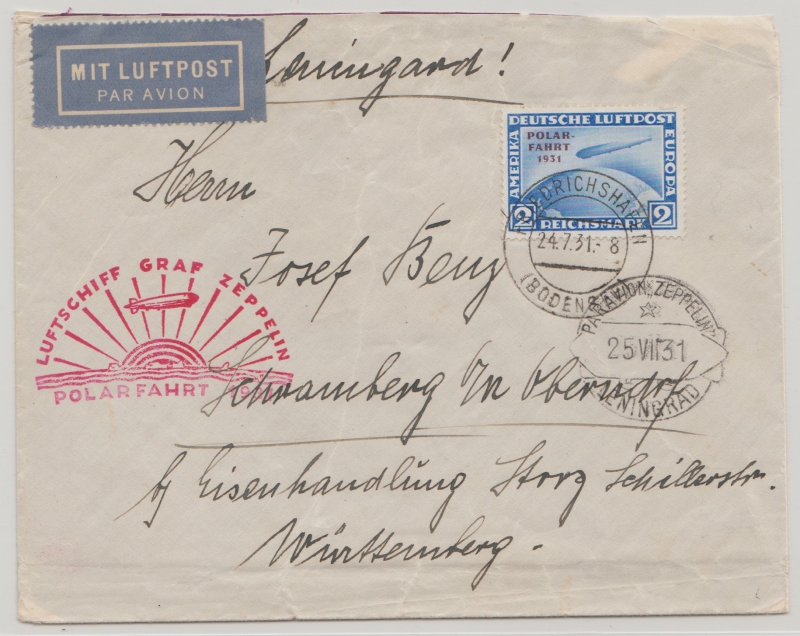 MIT LUFTPOST
PAR AVION
Leningard!
DEUTSCHE LUFTPOST
AMERIKA
EUROPA
POLAR-
FAHRT
1931
2 REICHSMARK 2
FRIEDRICHSHAFEN
24.7.31.-8
(BODENSEE)
Herrn
Josef Benz
LUFTSCHIFF GRAF ZEPPELIN
POLARFAHRT 1931
PARAVION „ZEPPELIN"
25 VII 31
LENINGRAD
Schramberg Oberndorf
b/ Eisenhandlung Storz Schillerstr.
Württemberg.